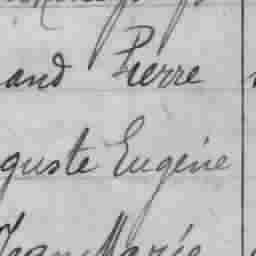 and Pierre
guste Eugène
Jean Marie